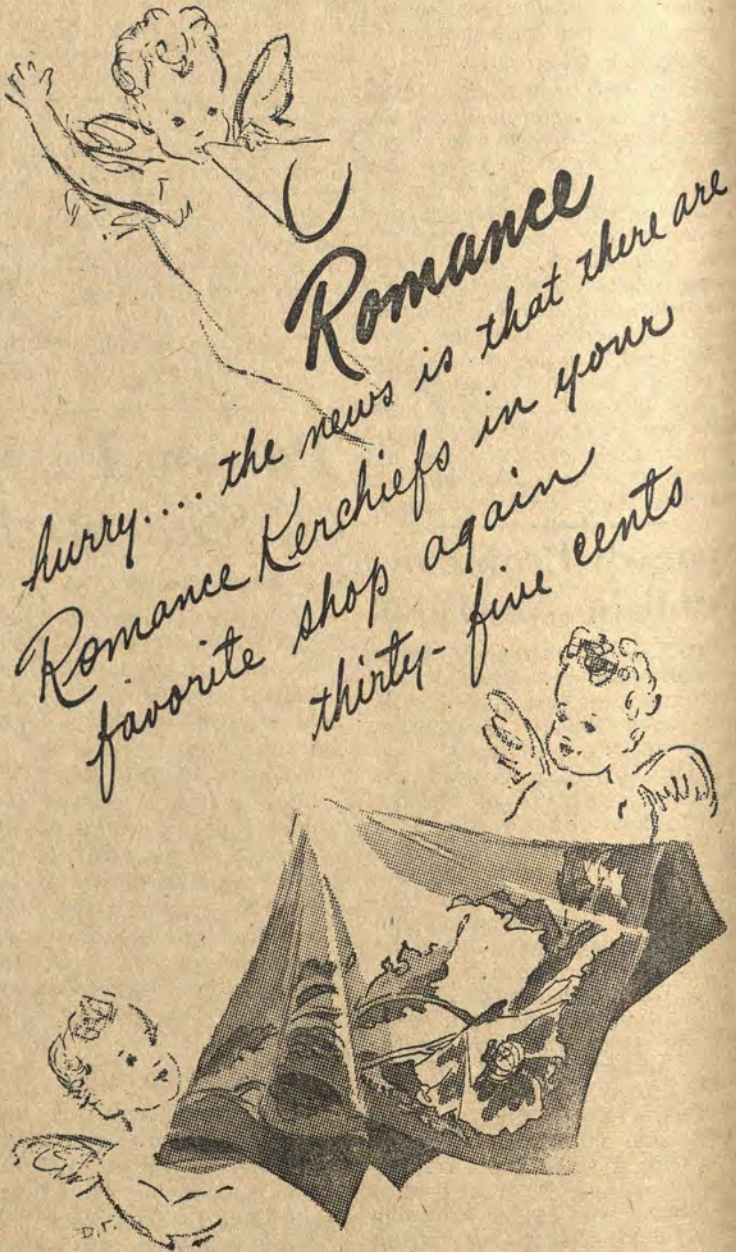 Romance
hurry.... the news is that there are
Romance Kerchiefs in your
favorite shop again
thirty-five cents